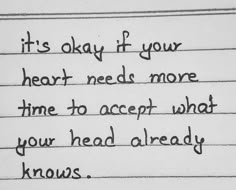 it's okay if your
heart needs more
time to accept what
your head already
knows.